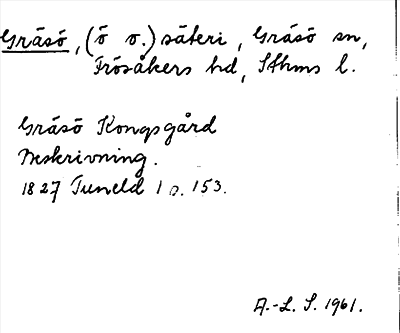 Gräsö, (ö o.) säteri, Gräsö sn,
Frösåkers hd, Sthms l.
Gräsö Kongsgård
Beskrivning.
1827 Tuneld 1 s. 153.
A.-L. S. 1961.